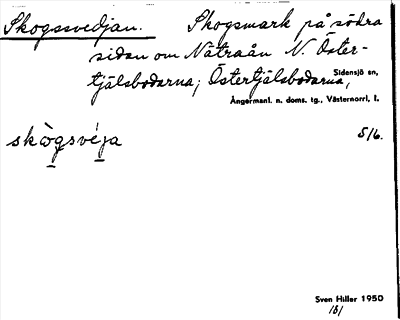 Skogssvedjan. Skogsmark på södra
sidan om Nätraån N. Öster-
tjälsbodarna; Östertjälsbodarna,
Sidensjö sn,
Ångermanl. n. doms. tg., Västernorrl. l.
skògsvéja
5/6.
Sven Hiller 1950
151